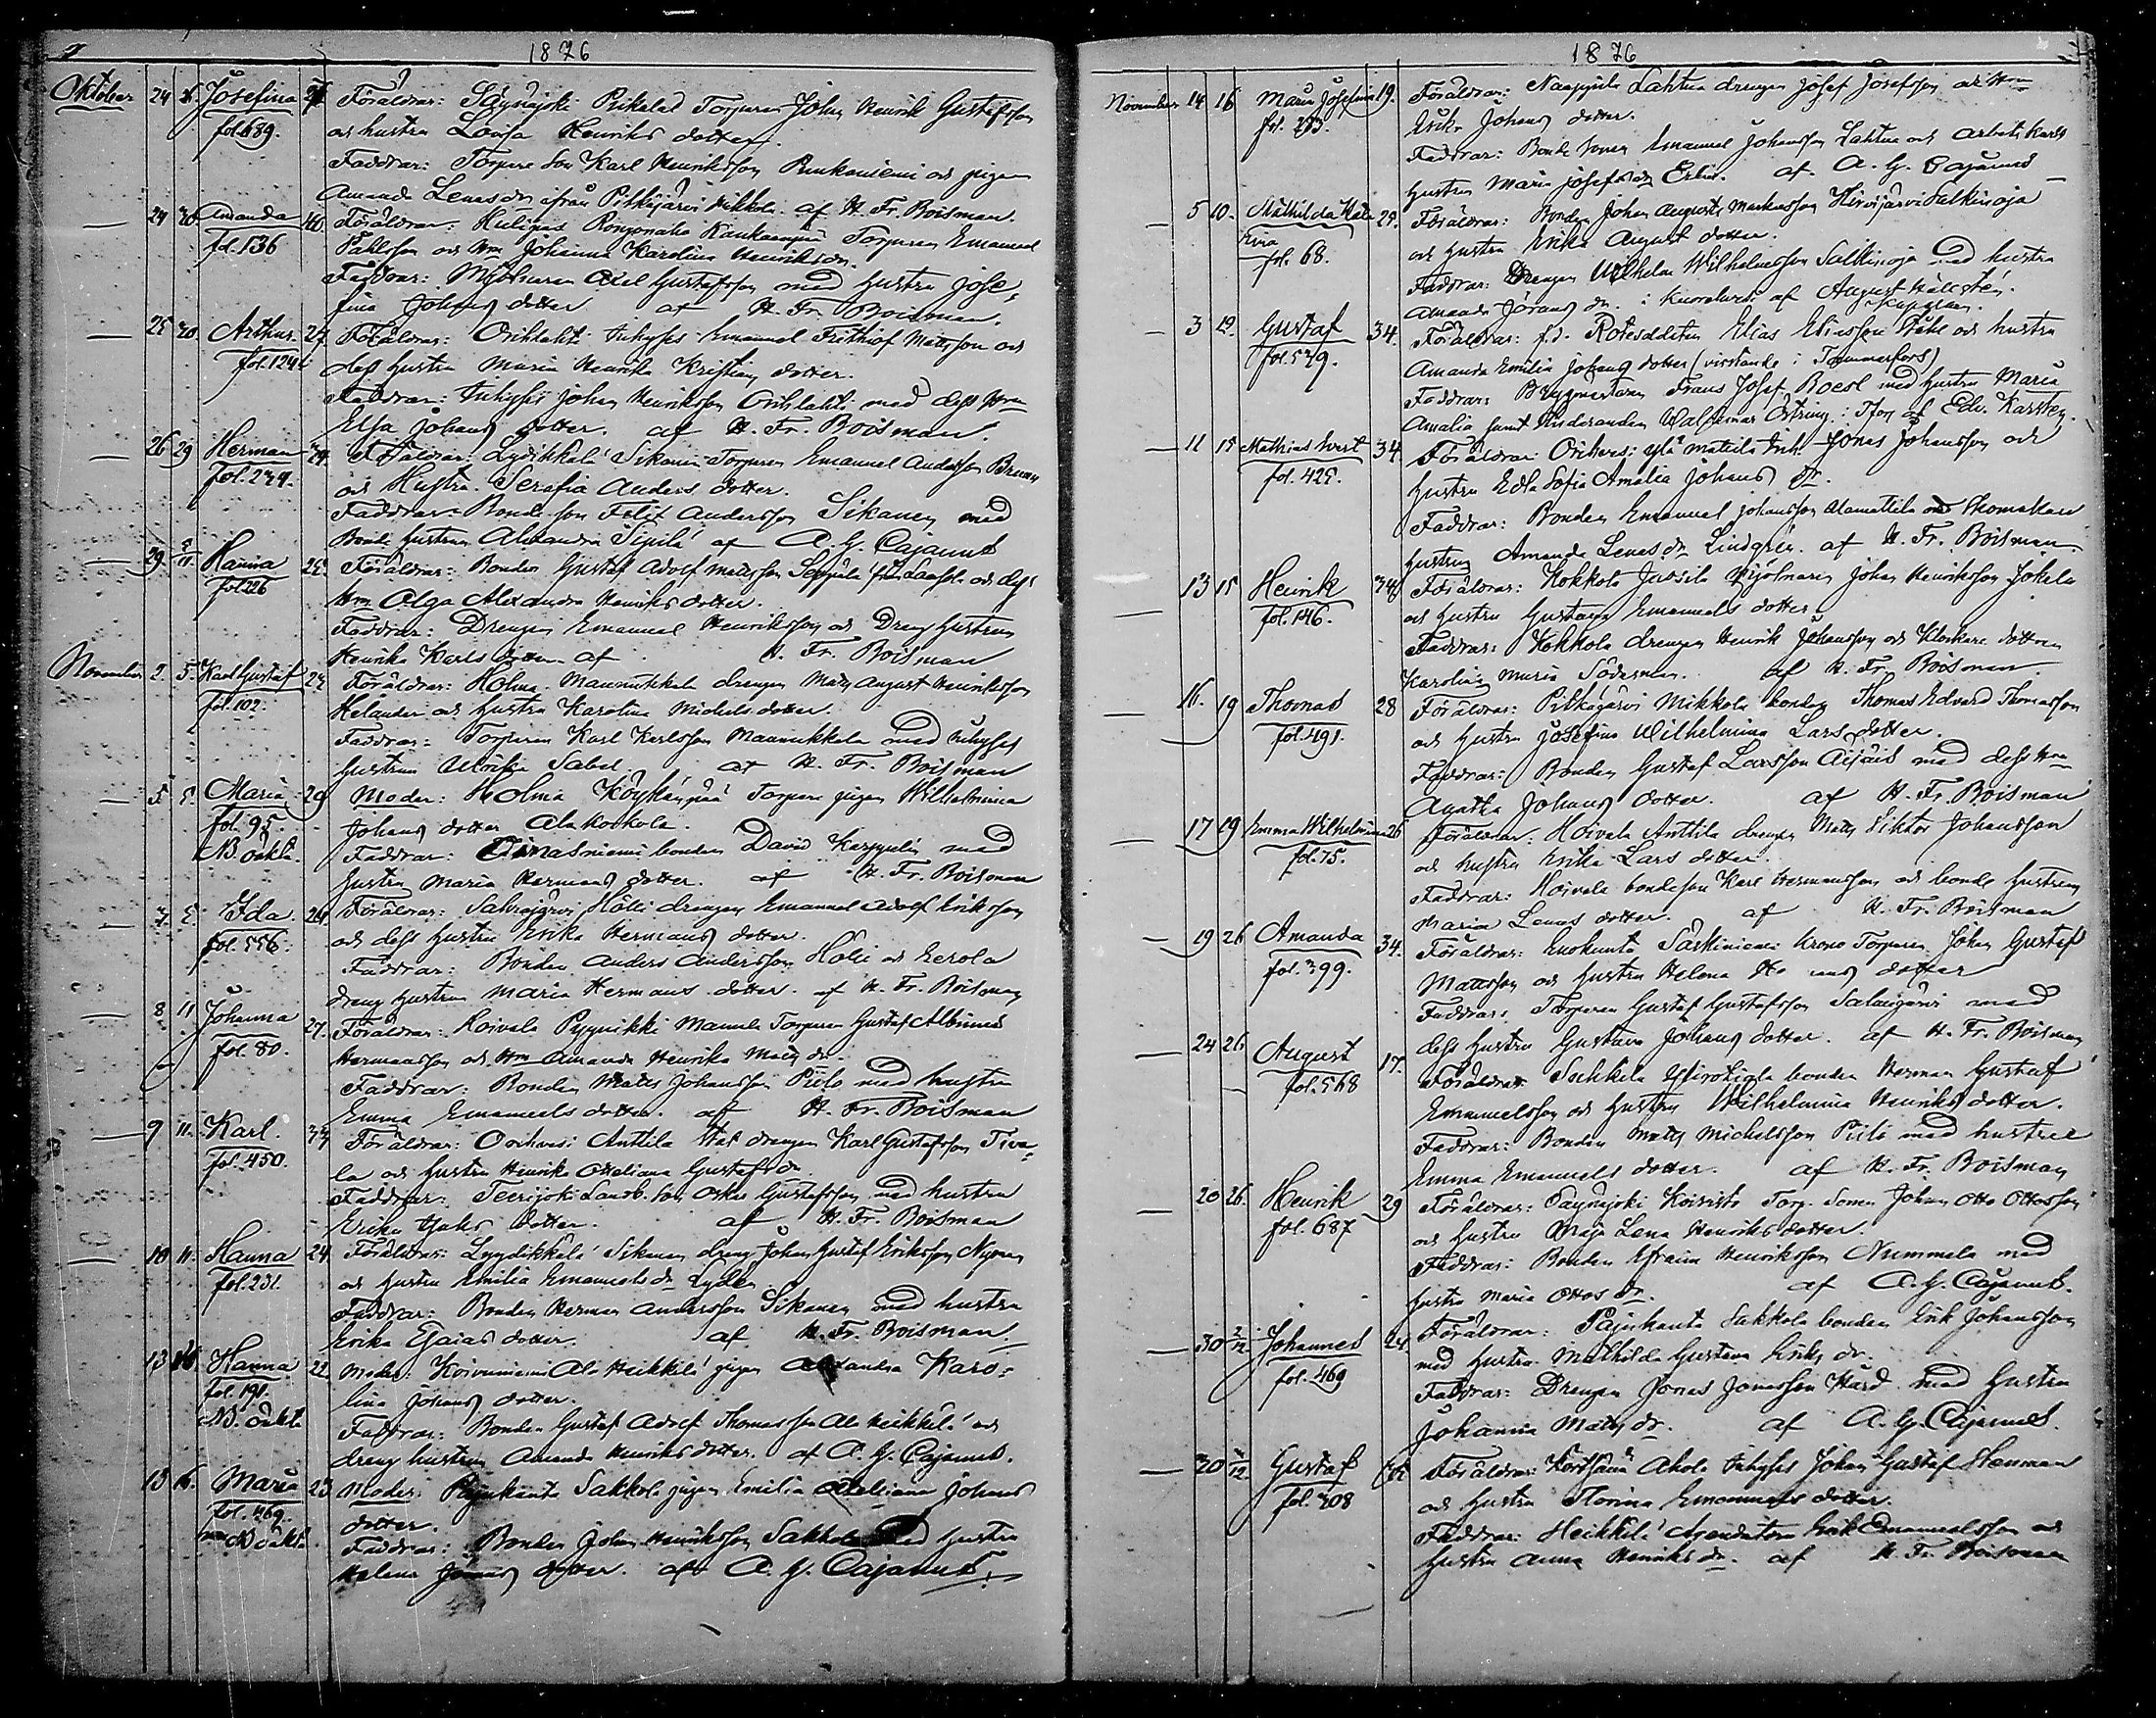 1876
Oktober 24 Josefina Föräldrar: Säynäjoki Torparen Johan Henrik Gustafsson
fol. 689. och hustru Lovisa Henriks dotter.
Faddrar: Torpare son Karl Henriksson och pigan
Amanda Lenas dr ifrån Pitkäjärvi Mikkola af H. Fr. Boisman.
29 30 Amanda 40 Föräldrar: Torparen Emanuel
fol. 136 Påhlsson och Hm Johanna Karolina Henriksdr.
Faddrar: Mjölnaren Axel Gustafsson med hustru Jose-
fina Johans dotter af H. Fr. Boisman.
25 30 Arthur 27 Föräldrar: Orihlahti Inhyses Emanuel Frithiof Mattsson och
fol. 124 dess hustru Maria Henrika Kristians dotter.
Faddrar: Inhyses Johan Henriksson Orihlahti med dess Hm
Elsa Johans dotter. af H. Fr. Boisman.
26 29 Herman 24 Föräldrar: Lydikkälä Sikanen Torparen Emanuel Andersson
fol. 234. och Hustru Serafia Anders dotter.
Faddrar: Bonde son Felix Andersson Sikanen med
Bonde hustrun Alexandra Sipilä af A. G. Cajanus
29 5/11 Hanna 25. Föräldrar: Bonden Gustaf Adolf Mattsson Seppälä från och dess
fol. 226 Hm Olga Alexandra Henriks dotter.
Faddrar: Drengen Emanuel Henriksson och Dreng hustrun
Henrika Karls dotter af H. Fr. Boisman
November 2 5 Karl Gustaf 27 Föräldrar: Holma Maunukkela drengen Matts August Henriksson
fol. 102. Helander och hustru Karolina Michels dotter.
Faddrar: Torparen Karl Karlsson Maunukkela med inhyses
hustrun Sabel. af H. Fr. Boisman
5 5 Maria 29 Moder: Holma Köykänpää Torpare pigan Wilhelmina
fol. 95. Johans dotter Alakoskela.
NB. oäkta. Faddrar: bonden David med
hustru Maria Hermans dotter. af H. Fr. Boisman
7 5 Ida 24. Föräldrar: Holli drengen Emanuel Adolf Eriksson
fol. 556. och dess hustru Erika Hermans dotter.
Faddrar: Bonden Anders Andersson Holli och Eerola
dreng hustrun Maria Hermans dotter. af H. Fr. Boisman
8 11 Johanna 27. Föräldrar: Koivula Pyynikki Torparen Gustaf Albinus
fol. 80. Hermansson och Hm Amanda Henrika Matts dr.
Faddrar: Bonden Matts Johansson med hustru
Emma Emanuels dotter. af H. Fr. Boisman
9 11. Karl. 33 Föräldrar: Orihvesi Anttila Stat drengen Karl Gustafsson Tiva-
fol. 450. la och hustru Henrika Otteliana Gustafs dr
Faddrar: Teerijoki Landb. son Oskar Gustafsson med hustru
Erika dotter. af H. Fr. Boisman
10 11. Hanna 24. Föräldrar: Lyydikkälä Sikanen dreng Johan Gustaf Eriksson Nyman
fol. 231. och hustru Emilia Emanuels dr
Faddrar: Bonden Herman Andersson Sikanen med hustru
Erika Esaias dotter. af H. Fr. Boisman.
13 16 Hanna 22 Moder: Koivuniemi Ala Heikkilä pigan Karo-
fol. 191. lina Johans dotter.
NB. oäkta Faddrar: Bonden Gustaf Adolf Thomasson Ala Heikkilä och
dreng hustrun Amanda Henriks dotter. af A. G. Cajanus.
13 16. Maria 23 Moder: Pajukanta Sakkola pigan Emilia Johans
fol. 469. dotter.
NB oäkta Faddrar: Bonden Johan Henriksson Sakkola med hustru
Helena dotter. af A. G. Cajanus.
1876
November 14 16 Maria Josefina 19. Föräldrar: Lahtua drengen Josef Josefsson och Hm
fol. 213. Erika Johans dotter.
Faddrar: Bonde sonen Emanuel Johansson Lahtua och arbets karls
hustrun Maria Josefsdr af A. G. Cajanus
5 10. Mathilda Kata-rina 29. Föräldrar: Bonden Johan August Markusson Hirvijärvi Salkinoja
fol. 68. och hustru Erika August dotter.
Faddrar: Drengen Wilhelm Wilhelmsson Salkinoja med hustru
Amanda Jörans dr. i af August Hällsten. Kapellan.
3 19. Gustaf 34. Föräldrar: f.d. Elias Eliasson Ståhl och hustru
fol. 579. Amanda Emilia Johans dotter (vistande i Tammerfors)
Faddrar: Frans Josef med hustru Maria
Amalia samt Studeranden Waldemar i T:fors af Edv. Karsten.
11 15 Mathias Ivert 34. Föräldrar: Orihvesi Ylä Mattila Inh. Jonas Johansson och
fol. 425. hustru Edla Sofia Amalia Johans dr.
Faddrar: Bonden Emanuel Johansson Alamattila och Skomakare
hustrun Amanda Lenas dr Lindgren. af H. Fr. Boisman
13 15 Henrik 34 Föräldrar: Kokkola Jussila Mjölnaren Johan Henriksson Jokela
fol. 146. och hustru Gustava Emanuels dotter.
Faddrar: Kokkola drengen Henrik Johansson och Klockare dottren
Karolina Maria Söderman. af H. Fr. Boisman
16. 19 Thomas 28 Föräldrar: Pitkäjärvi Mikkola bonden Thomas Edvard Thomasson
fol. 491. och hustru Josefina Wilhelmina Lars dotter.
Faddrar: Bonden Gustaf Larsson med dess Hm
Agatha Johans dotter. af H. Fr. Boisman
17 19 Emma Wilhelmina 26 Föräldrar: Koivula Anttila drengen Matts Viktor Johansson
fol. 75. och hustru Erika Lars dotter.
Faddrar: Koivula bondeson Karl Hermansson och bonde hustrun
Maria Lenas dotter. af H. Fr. Boisman
19 26 Amanda 34. Föräldrar: Enokunta Krono Torparen Johan Gustaf
fol. 399. Mattsson och hustru Helena dotter
Faddrar: Torparen Gustaf Gustafsson med
dess hustru Gustava Johans dotter. af H. Fr. Boisman
24 26 August 17. Föräldrar: bonden Herman Gustaf
fol. 568 Emanuelsson och hustru Wilhelmina Henriks dotter.
Faddrar: Bonden Matts Michelsson med hustru
Emma Emanuels dotter. af H. Fr. Boisman
20 26. Henrik 29 Föräldrar: Säynäjoki Koivisto Torp. Sonen Johan Otto Ottosson
fol. 687 och hustru Maja Lena Henriks dotter.
Faddrar: Bonden Efraim Henriksson Nummela med
hustru Maria Ottos dr. af A. G. Cajanus.
30 3/12 Johannes 24 Föräldrar: Pajukanta Sakkola bonden Erik Johansson
fol. 469 med hustru Mathilda Gustava Eriks dr.
Faddrar: Drengen Jonas Jonasson Hård med hustru
Johanna Matts dr. af A. G. Cajanus.
20 /12 Gustaf Föräldrar: Ahola Inhyses Johan Gustaf Stenman
fol. 308 och hustru Florina Emanuels dotter.
Faddrar: Heikkilä Arendatorn Erik Emanuelsson och
hustru Anna Henriks dr. af H. Fr. Boisman